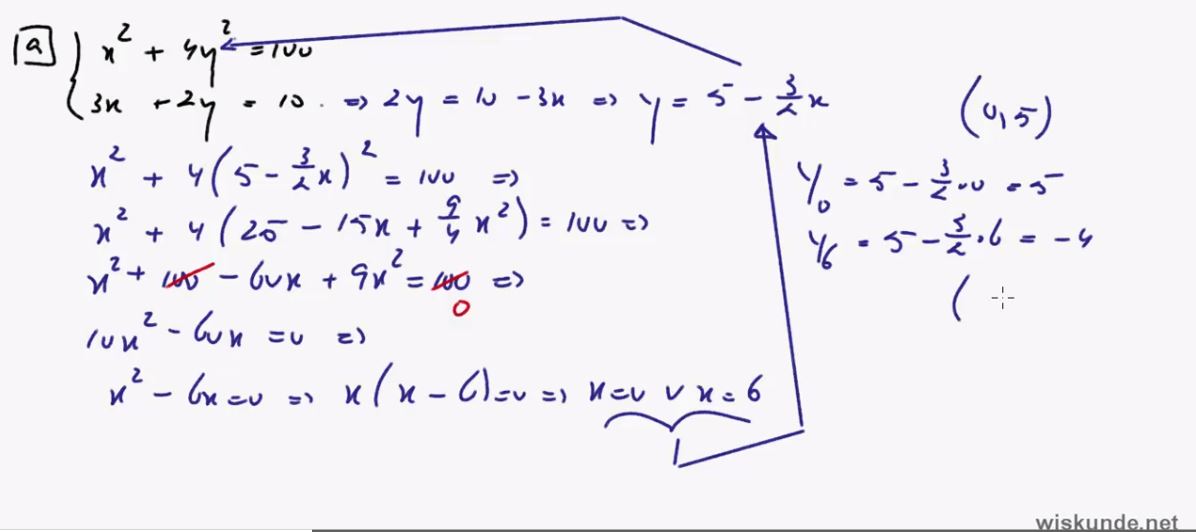 a { x² + 4y² = 100
3x + 2y = 10 . => 2y = 10 - 3x => y = 5 - 3/2 x
x² + 4(5 - 3/2 x)² = 100 =>
x² + 4(25 - 15x + 9/4 x²) = 100 =>
x² + 100 - 60x + 9x² = 100 =>
0
10x² - 60x = 0 =>
x² - 6x = 0 => x(x - 6) = 0 => x = 0 ∨ x = 6
(0,5)
y₀ = 5 - 3/2 · 0 = 5
y₆ = 5 - 3/2 · 6 = -4
(
wiskunde.net